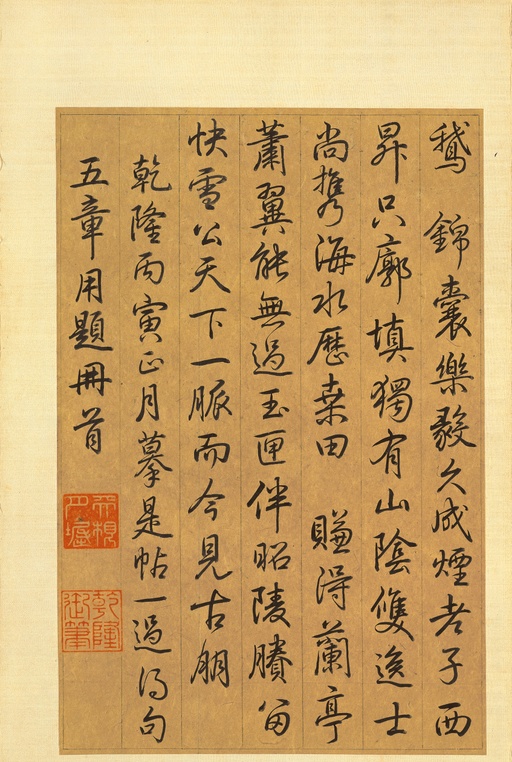 鵝 錦囊樂毅久成煙老子西
昇只廓填獨有山陰雙逸士
尚携海水歷桑田 賺得蘭亭
蕭翼能無過玉匣伴昭陵賸留
快雪公天下一脈而今見古朋
乾隆丙寅正月摹是帖一過得句
五章用題冊首
乾隆
御筆